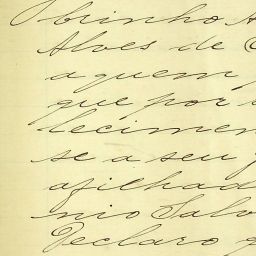 brinho A
Alves de C
a quem
que por
lecimen
se a seu
afilhad
nio Salv
Declaro q